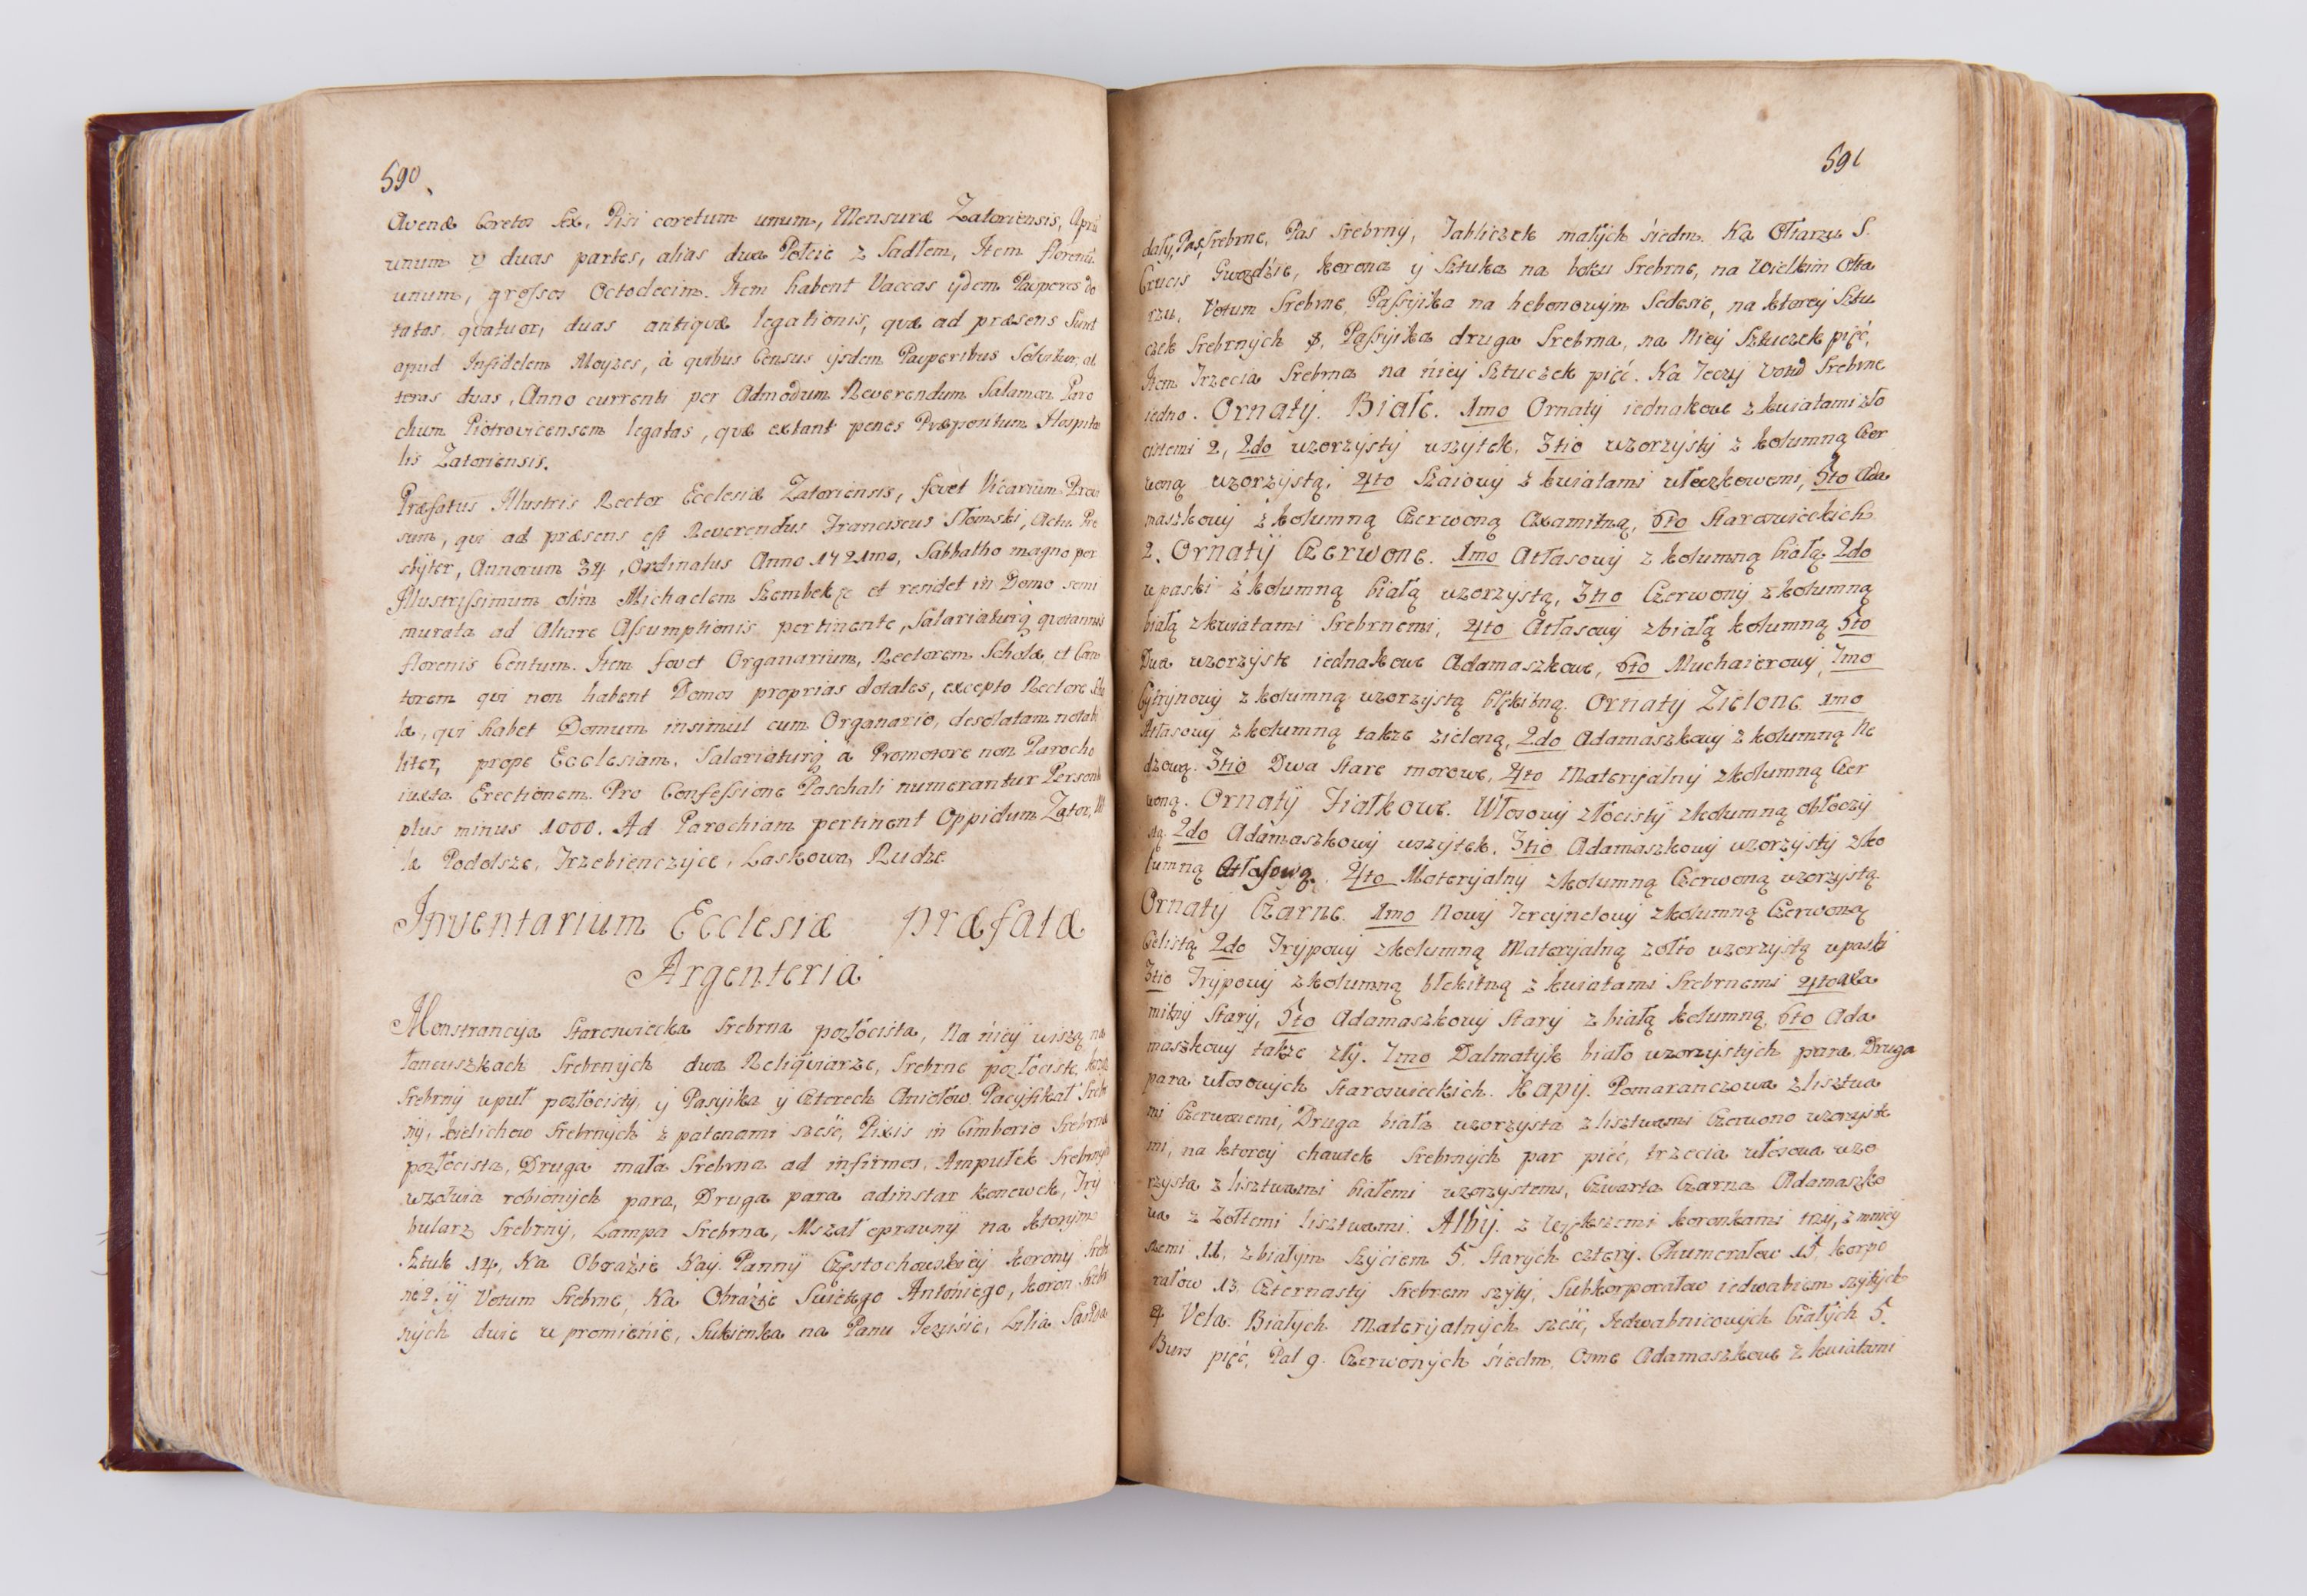 590
Avenæ Coretos Sex, Pisi coretum unum, Mensuræ Zatoriensis, Aprū
unum v duas partes, alias dwa Połcie z Sadłem, Item florenū
unum, grossos Octodecim. Item habent Vaccas ijdem Pauperes do
tatas quatuor, duas antiquæ legationis, quæ ad præsens Sunt
apud Infidelem Moyzes, à quibus Census ijsdem Pauperibus Solvitur, al
teras duas, Anno currenti per Admodum Reverendum Salamon Paro
chum Piotrovicensem legatas, quæ extant penes Præpositum Hospita
lis Zatoriensis.
Præfatus Illustris Rector Ecclesiæ Zatoriensis, fovet Vicarium
sum, qui ad præsens est Reverendus Franciscus Słomski, Actu Pre
sbyter, Annorum 34, Ordinatus Anno 1721mo, Sabbatho magno per
Illustrissimum olim Michaelem Szembek et residet in Domo semi
murata ad Altare Assumptionis pertinente, Salariaturq quotannis
florenis Centum. Item fovet Organarium, Rectorem Scholæ et Can
torem qui non habent Domos proprias dotales, excepto Rectore Scho
læ, qui habet Domum insimul cum Organario, desolatam notabi
liter, prope Ecclesiam, Salariaturq à Promotore non Parocho
iuxta Erectionem. Pro Confessione Paschali numerantur Personæ
plus minus 1000. Ad Parochiam pertinent Oppidum Zator, Vil
læ Podolsze, Trzebienczyce, Laskowa, Rudze
Inventarium Ecclesiæ præfatæ
Argenteria
Monstrancyja Staroswiecka Srebrna pozłocista, Na niey wiszą na
łancuszkach Srebrnych dwa Reliqwiarze, Srebrne pozłociste,
Srebrny wpuł pozłocisty, y Pasyika y Czterech Aniołow. Pacyfikał Srebr
ny, kielichow Srebrnych z patenami szesc, Pixis in Cimborio Srebrna
pozłocista, Druga mała Srebrna ad infirmos, Ampułek Srebrnych
wzołwia robionych para, Druga para adinstar konewek, Try
bularz Srebrny, Lampa Srebrna, Mszał oprawny na ktorym
Sztuk 14, Na Obrazie Nay. Panny Częstochowskiey korony Srebr
ne 2, y Votum Srebrne, Na Obrazie Swiętego Antoniego, koron Srebr
nych dwie w promienie, Sukienka na Panu Jezusie, Lilia Sanda
591
dały, Pas, Srebrne, Pas Srebrny, Tabliczek małych siedm. Na Ołtarzu S.
Crucis Gwozdzie, korona y Sztuka na boku Srebrne, na Wielkim Ołta
rzu, Votum Srebrne, Passyika na hebonowym Sedesie, na ktorey Sztu
czek Srebrnych 8, Passyika druga Srebrna, na Niey Sztuczek pięć,
Item Trzecia Srebrna na niey Sztuczek pięć. Na Teczy Votum Srebrne
iedno. Ornaty. Białe. 1mo Ornaty iednakowe z kwiatami zło
cistemi 2, 2do wzorzysty wszytek, 3tio wzorzysty z kolumną Czer
woną wzorzystą, 4to Szaiowy z kwiatami włoczkowemi, 5to Ada
maszkowy z kolumną Czerwoną Axamitną, 6to Staroswieckich
2. Ornaty Czerwone. 1mo Atłasowy z kolumną białą 2do
w paski z kolumną białą wzorzystą, 3tio Czerwony z kolumną
białą z kwiatami Srebrnemi, 4to Atłasowy z białą kolumną 5to
Dwa wzorzyste iednakowe Adamaszkowe, 6to Muchaierowy, 7mo
Cytrynowy z kolumną wzorzystą błękitną. Ornaty Zielone 1mo
Atłasowy z kolumną także zieloną, 2do Adamaszkowy z kolumną Ne
dzową. 3tio Dwa Stare morowe, 4to Materyalny z kolumną Czer
woną. Ornaty Fiałkowe. Włosowy złocisty z kolumną obłoczy
stą. 2do Adamaszkowy wszytek. 3tio Adamaszkowy wzorzysty z ko
lumną Atłasową. 4to Materyalny z kolumną Czerwoną wzorzystą.
Ornaty Czarne. 1mo Nowy Tercynelowy z kolumną Czerwoną
Cielistą 2do Trypowy z kolumną Materyalną zołto wzorzystą w paski
3tio Trypowy z kolumną błekitną z kwiatami Srebrnemi 4to Axa
mitny Stary, 5to Adamaszkowy Stary z białą kolumną, 6to Ada
maszkowy takze zły. 7mo Dalmatyk biało wzorzystych para, Druga
para włosowych Staroswieckich. Kapy. Pomaranczowa z lisztwa
mi Czerwonemi, Druga biała wzorzysta z lisztwami Czerwono wzorzyste
mi, na ktorey chawtek Srebrnych par pięć, trzecia włosowa wzo
rzysta z lisztwami białemi wzorzystemi, Czwarta Czarna Adamaszko
wa z Zołtemi lisztwami. Alby. z większemi koronkami trzy, z mniey
szemi 11, z białym szyciem 5. Starych cztery. Chumerałow 15, korpo
rałow 13. Czternasty Srebrem szyty, Subkorporałow iedwabiem szytych
4 Vela. Białych Materyalnych szesc, Jedwabnicowych białych 5.
Burs pięć, Pal 9. Czerwonych siedm, Osme Adamaszkowe z kwiatami